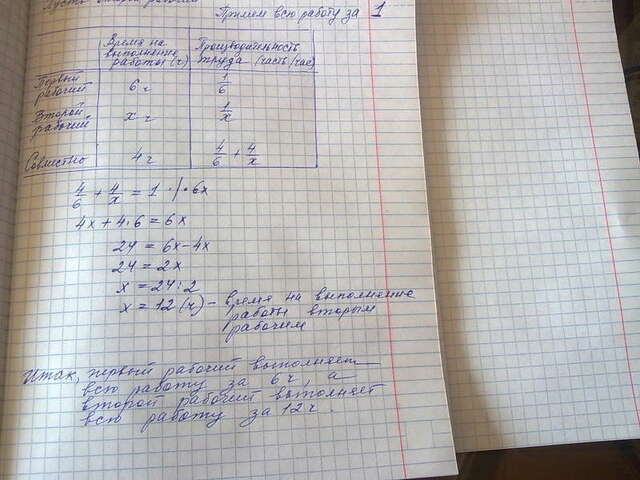 Пусть второй рабочий
Примем всю работу за 1
Время на выполнение работы (ч)
Производительность труда (часть/час)
Первый рабочий 6 ч 1/6
Второй рабочий x ч 1/x
Совместно 4 ч 4/6 + 4/x
4/6 + 4/x = 1 · / · 6x
4x + 4·6 = 6x
24 = 6x - 4x
24 = 2x
x = 24:2
x = 12 (ч) - время на выполнение
работы вторым
рабочим
Итак, первый рабочий выполняет
всю работу за 6 ч, а
второй рабочий выполняет
всю работу за 12 ч.